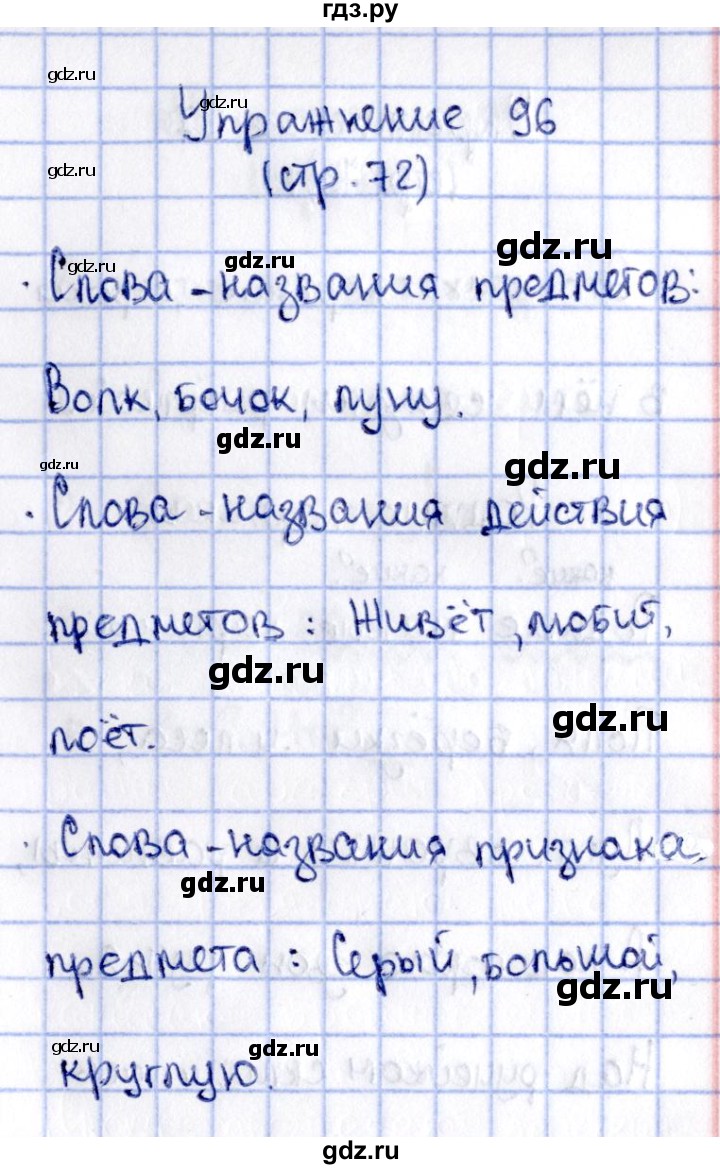 гдз.ру
gdz.ru
gdz.ru
Упражнение 96
gdz.ru
(стр. 72)
gdz.ru
gdz.ru
gdz.ru
· Слова - названия предметов:
Волк, бочок, луну.
gdz.ru
gdz.ru
gdz.ru
· Слова - названия действия
предметов: Живёт, любит,
gdz.ru
gdz.ru
поёт.
· Слова - названия признака
gdz.ru
предмета: Серый, большой,
gdz.ru
gdz.ru
gdz.ru
круглую.
gdz.ru